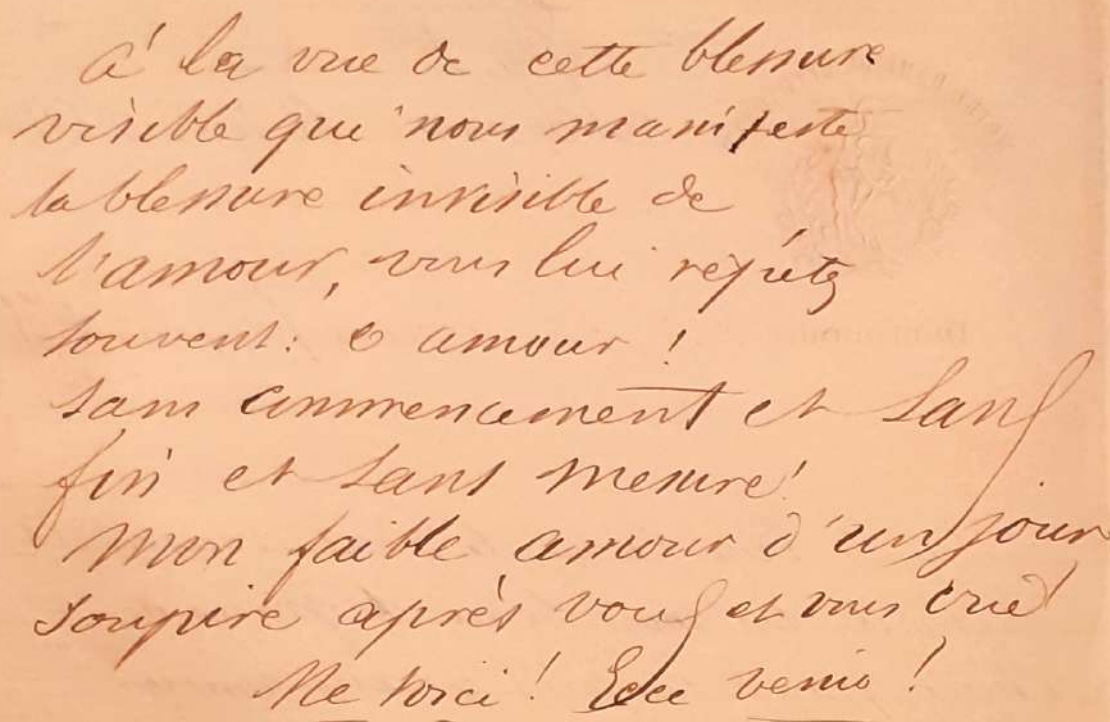 À la vue de cette blessure
visible que nous manifeste
la blessure invisible de
l'amour, vous lui répétez
souvent : O amour !
sans commencement et sans
fin et sans mesure !
Mon faible amour d'un jour
soupire après vous et vous crie
Me voici ! Ecce venio !